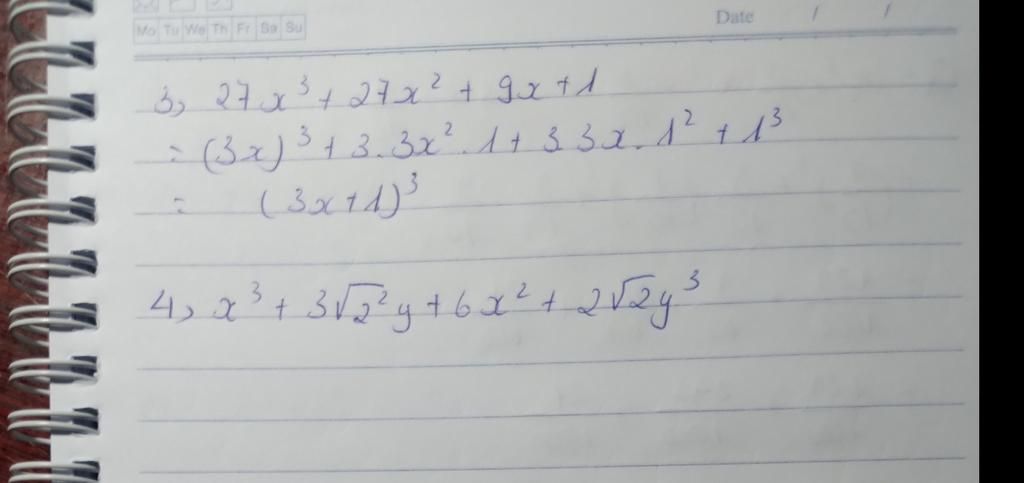 Mo Tu We Th Fr Sa Su
Date / /
3, 27x³ + 27x² + 9x + 1
= (3x)³ + 3.3x².1 + 3.3x.1² + 1³
= (3x+1)³
4, x³ + 3√2²y + 6x² + 2√2y³